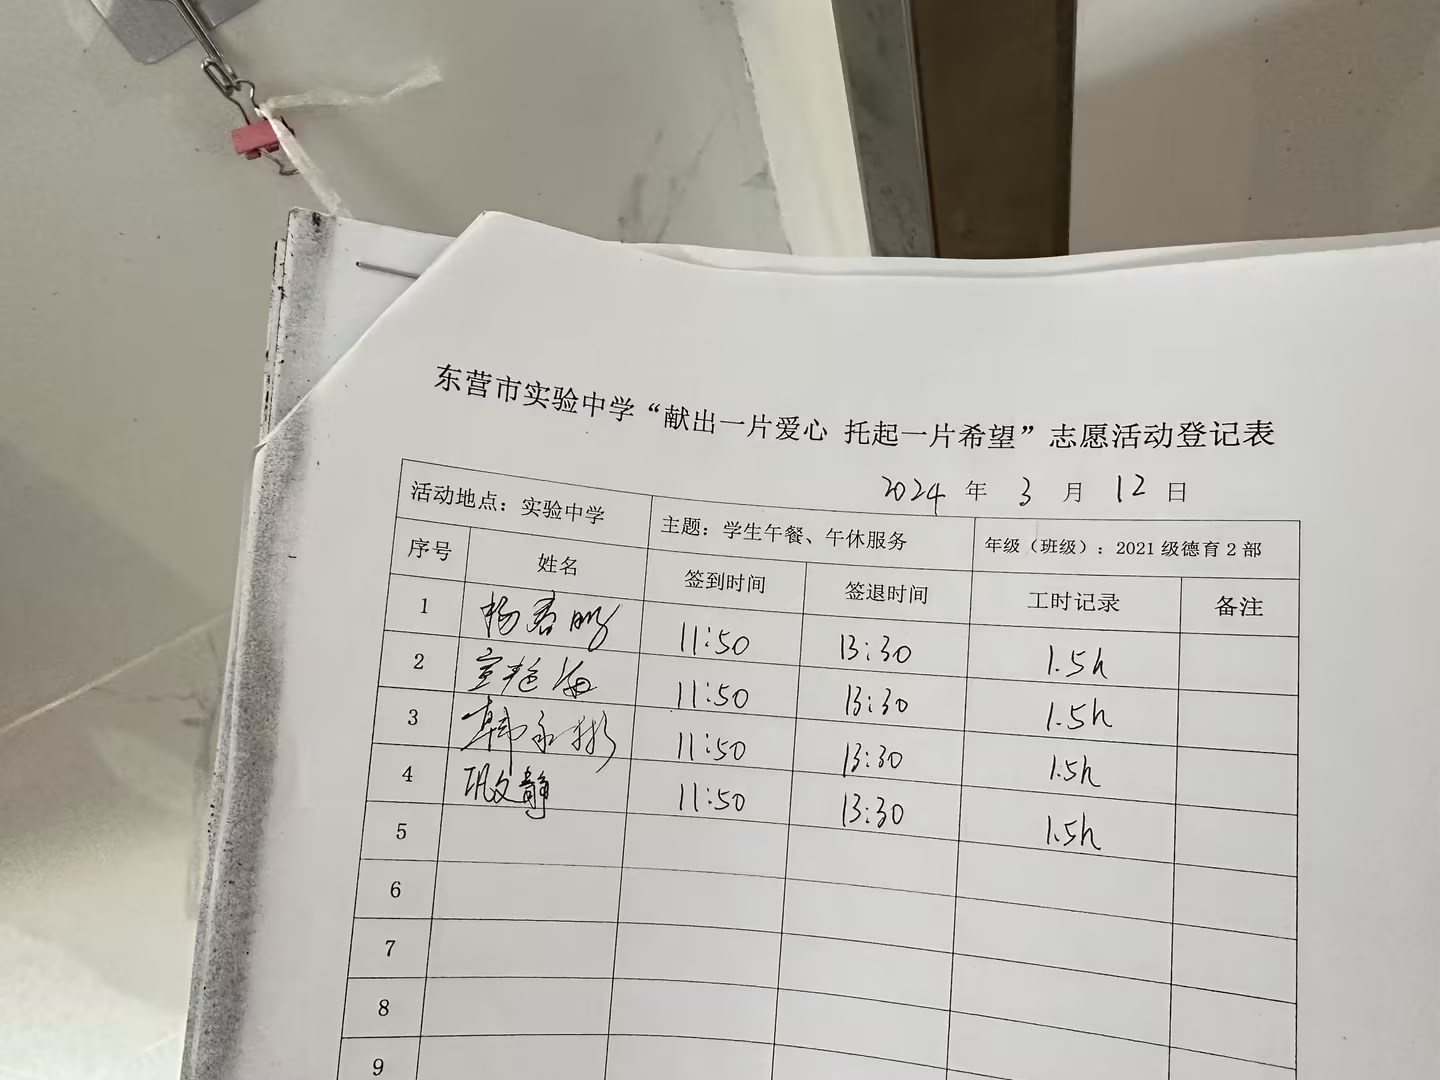 东营市实验中学“献出一片爱心 托起一片希望”志愿活动登记表
2024 年 3 月 12 日
活动地点：实验中学 主题：学生午餐、午休服务 年级（班级）：2021 级德育 2 部
序号 姓名 签到时间 签退时间 工时记录 备注
1 杨春鹏 11:50 13:30 1.5h
2 11:50 13:30 1.5h
3 韩永彬 11:50 13:30 1.5h
4 巩文静 11:50 13:30 1.5h
5
6
7
8
9